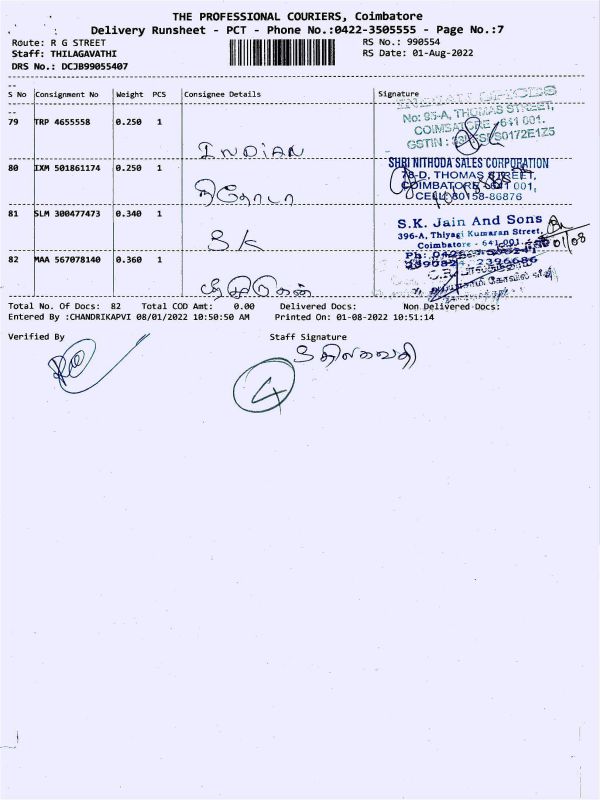 THE PROFESSIONAL COURIERS, Coimbatore
Delivery Runsheet - PCT - Phone No.:0422-3505555 - Page No.:7
Route: R G STREET RS No.: 990554
Staff: THILAGAVATHI RS Date: 01-Aug-2022
DRS No.: DCJB99055407
S No Consignment No Weight PCS Consignee Details Signature
79 TRP 4655558 0.250 1
No: 95-A, THOMAS STREET,
COIMBATORE - 641 001.
INDIAN
80 IXM 501861174 0.250 1
SHRI NITHODA SALES CORPORATION
78-D, THOMAS STREET,
COIMBATORE - 641 001,
CELL: 80158-86876
நிதோடா
81 SLM 300477473 0.340 1
S.K. Jain And Sons
396-A, Thiyagi Kumaran Street,
Coimbatore - 641 001
SK
01/08
82 MAA 567078140 0.360 1
Total No. Of Docs: 82 Total COD Amt: 0.00 Delivered Docs: Non Delivered Docs:
Entered By :CHANDRIKAPVI 08/01/2022 10:50:50 AM Printed On: 01-08-2022 10:51:14
Verified By Staff Signature
திலகவதி
4